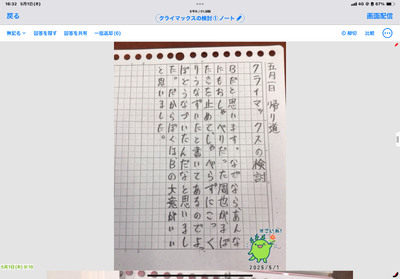 16:32 5月1日(木)
40%
戻る
クライマックスの検討① ノート
画面配信
無記名
回答を隠す
回答を共有
一括返却 (6)
締切
比較
五月一日 帰り道
クライマックスの検討
Bだと思います。なぜなら、あんな
にもおしゃべりだった周也がまば
たきを止めて、しゃべらずにこっく
りうなずいたと書いてあるのでよ
ばどうなづいたんだなと思いまし
た。だからぼくはBの大意がいい
と思いました。
すごいね!
2025/5/1
5月1日(木)